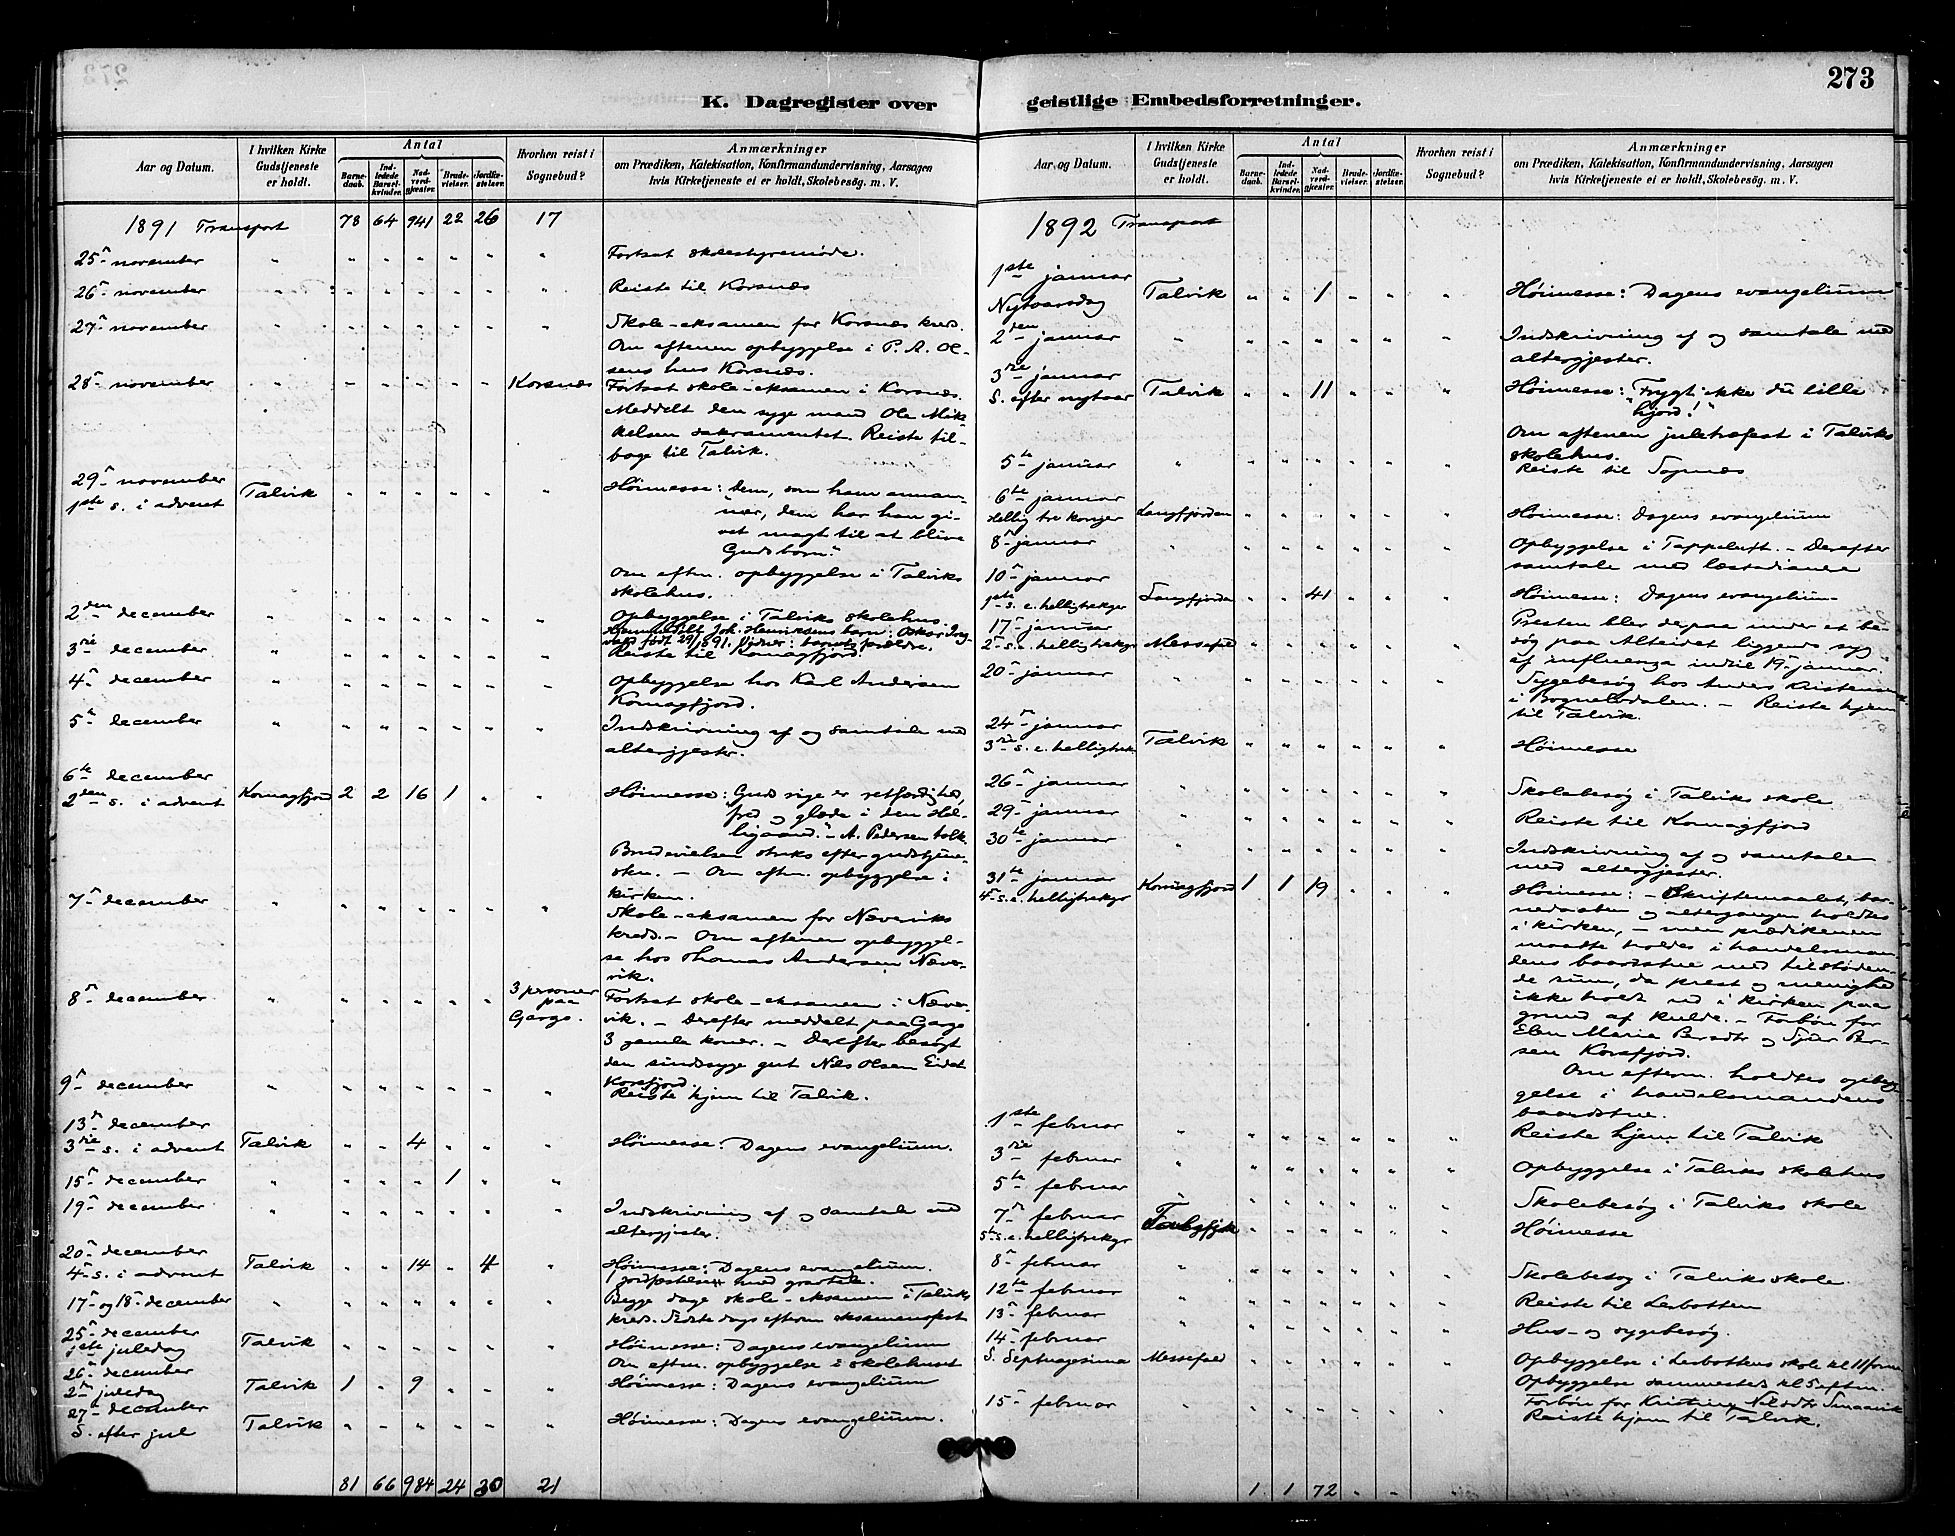 273
K. Dagregister over geistlige Embedsforretninger.
Aar og Datum.
I hvilken Kirke Gudstjeneste er holdt.
Antal
Barne-daab.
Ind-ledede Barsel-kvinder.
Nad-verd-gjester.
Brude-vielser.
Jordfæ-stelser.
Hvorhen reist i Sognebud?
Anmærkninger
om Prædiken, Katekisation, Konfirmandundervisning, Aarsagen
hvis Kirketjeneste ei er holdt, Skolebesøg. m. V.
1891 Transport 78 64 941 22 26 17
25de november " " " " " " " Fortsat skolestyremøde.
26de november " " " " " " " Reiste til Korsnæs
27de november " " " " " " " Skole-eksamen for Korsnæs kreds.
Om aftenen opbyggelse i P. A. Ol-
sens hus Korsnæs.
28de november " " " " " " Korsnæs Fortsat skole-eksamen i Korsnæs.
Meddelt den syge mand Ole Mik-
kelsen sakramentet. Reiste til-
bage til Talvik.
29de november
1ste s. i advent Talvik " " " " " " Høimesse: "Dem, som ham annam-
mer, dem har han gi-
vet magt til at blive
Guds børn"
Om eftm. opbyggelse i Talviks
skolehus.
2den december " " " " " " " Opbyggelse i Talviks skolehus
Hjemmedøbt Joh. Henriksens barn: Oskar
født 29/ 1891. Vidner: barnets forældre.
3die december " " " " " " " Reiste til Komagfjord.
4de december " " " " " " " Opbyggelse hos Karl Andersen
Komagfjord.
5te december " " " " " " " Indskrivning af og samtale med
altergjester.
6te december
2den s. i advent Komagfjord 2 2 16 1 " " Høimesse: "Guds rige er retfærdighed,
fred og glæde i den Hel-
ligaand." - A. Pedersen tolk.
Brudevielsen straks efter gudstjene-
sten. - Om eftm. opbyggelse i
kirken.
7de december " " " " " " " Skole-eksamen for Næverviks
kreds. - Om aftenen opbyggel-
se hos Thomas Andersen Næver-
vik.
8de december " " " " " " 3 personer paa Gargo. Fortsat skole-eksamen i Næver-
vik. - Derefter meddelt paa Gargo
3 gamle koner. - Derefter besøgt
den sindssyge gut Nils Olsen Eidet
Korsfjord.
9de december " " " " " " " Reiste hjem til Talvik.
13de december
3die s. i advent Talvik " " 4 " " " Høimesse: Dagens evangelium.
15de december " " " " 1 " "
19de december " " " " " " " Indskrivning af og samtale med
altergjester.
20de december
4de s. i advent Talvik " " 14 " 4 " Høimesse: Dagens evangelium.
1 jordfæstelse med gravtale.
17de og 18de december " " " " " " " Begge dage skole-eksamen i Talviks
kreds. Sidste dags eftermiddag eksamensfest
25de december
1ste juledag Talvik " " " " " " Høimesse: Dagens evangelium
Om eftm. opbyggelse i skolehuset
26de december
2den juledag Talvik 1 " 9 " " " Høimesse: Dagens evangelium
27de december
S. efter jul Talvik " " " " " " Høimesse: Dagens evangelium.
81 66 984 24 30 21
Aar og Datum.
I hvilken Kirke Gudstjeneste er holdt.
Antal
Barne-daab.
Ind-ledede Barsel-kvinder.
Nad-verd-gjester.
Brude-vielser.
Jordfæ-stelser.
Hvorhen reist i Sognebud?
Anmærkninger
om Prædiken, Katekisation, Konfirmandundervisning, Aarsagen
hvis Kirketjeneste ei er holdt, Skolebesøg. m. V.
1892 Transport
1ste januar
Nytaarsdag Talvik " " 1 " " " Høimesse: Dagens evangelium
2den januar " " " " " " " Indskrivning af og samtale med
altergjester.
3die januar
S. efter nytaar Talvik " " 11 " " " Høimesse: "Frygt ikke du lille
hjord!"
Om aftenen juletræfest i Talviks
skolehus.
5te januar " " " " " " " Reiste til Sopnæs
6te januar
Hellig tre konger Langfjorden " " " " " " Høimesse: Dagens evangelium
8de januar " " " " " " " Opbyggelse i Tappeluft. - Derefter
samtale med læstadianere
10de januar
1ste s. e. helligtrekgr Langfjorden " " 41 " " " Høimesse: Dagens evangelium
17de januar
2den s. e. helligtrekgr Messefald " " " " " " Presten blev der paa under et be-
søg paa Alteidet liggende syg
af influenza indtil 19de januar.
20de januar " " " " " " " Sygebesøg hos Anders Kristensen
i Bognelvdalen. - Reiste hjem
til Talvik.
24de januar
3die s. e. helligtrek. Talvik " " " " " " Høimesse
26de januar " " " " " " " Skolebesøg i Talviks skole
29de januar " " " " " " " Reiste til Komagfjord
30te januar " " " " " " " Indskrivning af og samtale
med altergjester.
31te januar
4de s. e. helligtrekgr Komagfjord 1 1 19 " " " Høimesse: - Skriftemaalet, bar-
nedaaben og altergangen holdtes
i kirken, - men prædikenen
maatte holdes i handelsman-
dens baardstue med tilstøden-
de rum, da prest og menighed
ikke holdt ud i kirken paa
grund af kulde. - Forbøn for
Elen Maria Persdtr og Per-
sen Korsfjord.
Om efterm. holdtes opbyg-
gelse i handelsmandens
baardstue.
1ste februar " " " " " " " Reiste hjem til Talvik
3die februar " " " " " " " Opbyggelse i Talviks skolehus
5te februar " " " " " " " Skolebesøg i Talviks skole
7de februar
5te s. e. helligtrekgr " " " " " " Høimesse
8de februar " " " " " " " Skolebesøg i Talviks skole
12te februar " " " " " " " Reiste til Lerbotten
13de februar " " " " " " " Hus- og sygebesøg.
14de februar
S. Septuagesima Messefald " " " " " " Opbyggelse i Lerbottens skole kl 11 form
Opbyggelse sammesteds kl 5 eftm.
Forbøn for Kristine Nilsdtr
15de februar " " " " " " " Reiste hjem til Talvik.
1 1 72 " "